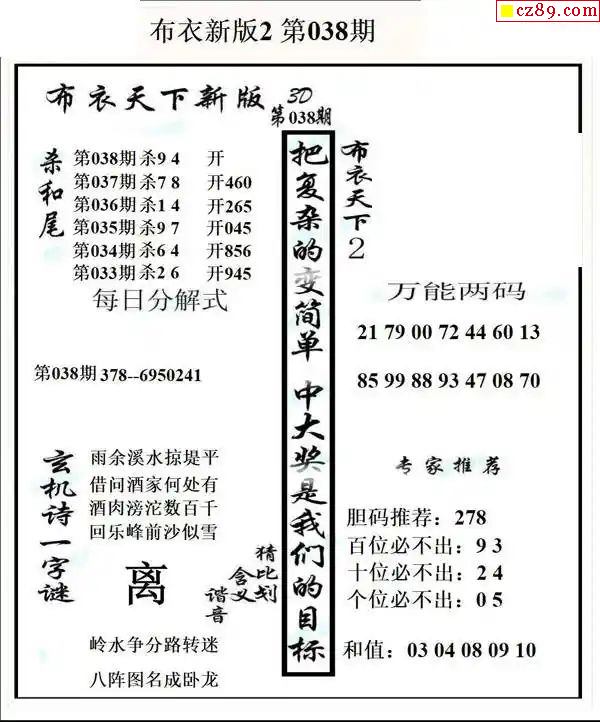 cz89.com
布衣新版2 第038期
布衣天下新版
3D
第038期
杀和尾
第038期 杀9 4 开
第037期 杀7 8 开460
第036期 杀1 4 开265
第035期 杀9 7 开045
第034期 杀6 4 开856
第033期 杀2 6 开945
每日分解式
第038期 378--6950241
玄机诗一字谜
雨余溪水掠堤平
借问酒家何处有
酒肉滂沱数百千
回乐峰前沙似雪
离
猜比划
含义
谐音
岭水争分路转迷
八阵图名成卧龙
把复杂的变简单 中大奖是我们的目标
布衣天下2
万能两码
21 79 00 72 44 60 13
85 99 88 93 47 08 70
专家推荐
胆码推荐：278
百位必不出：9 3
十位必不出：2 4
个位必不出：0 5
和值：03 04 08 09 10